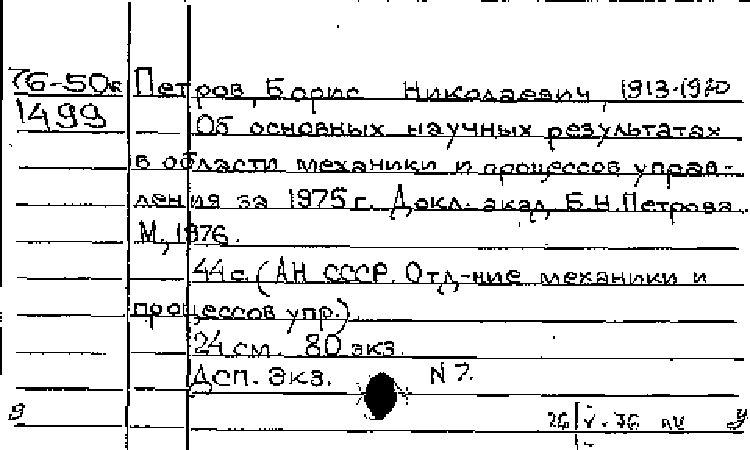 76-50к Петров, Борис Николаевич, 1913-1980
1499 Об основных научных результатах
в области механики и процессов управ-
ления за 1975 г. Докл. акад. Б.Н. Петрова.
М., 1976.
44 с. (АН СССР. Отд-ние механики и
процессов упр.)
24 см. 80 экз.
Дсп. Экз. N 7.
9 26/V-76